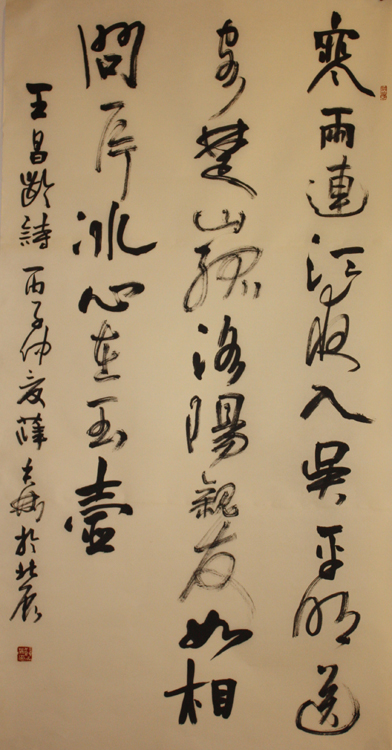 寒雨連江夜入吳平明送
客楚山孤洛陽親友如相
問一片冰心在玉壺
王昌齡詩 丙子仲夏薛夫彬於北辰